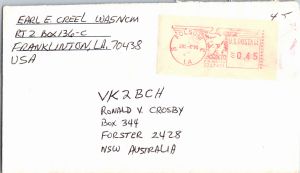 EARL E CREEL WA5NCM
RT 2 BOX 136-C
FRANKLINTON, LA. 70438
USA
U.S. POSTAGE
0.45
LA
VK2BCH
RONALD V. CROSBY
BOX 344
FORSTER 2428
NSW AUSTRALIA